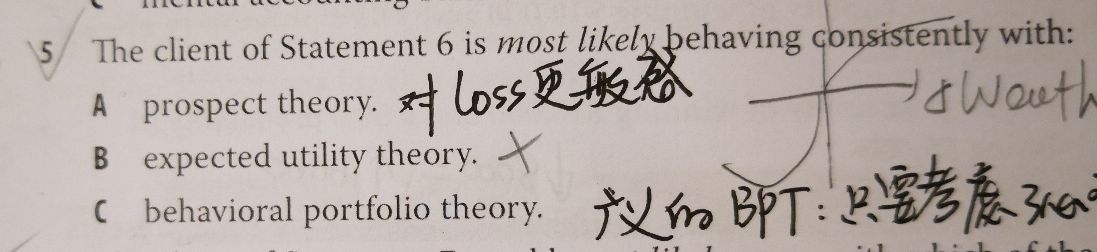 5 The client of Statement 6 is most likely behaving consistently with:
A prospect theory. 对 Loss 更敏感
B expected utility theory. ×
C behavioral portfolio theory.
广义的 BPT: 只要考虑